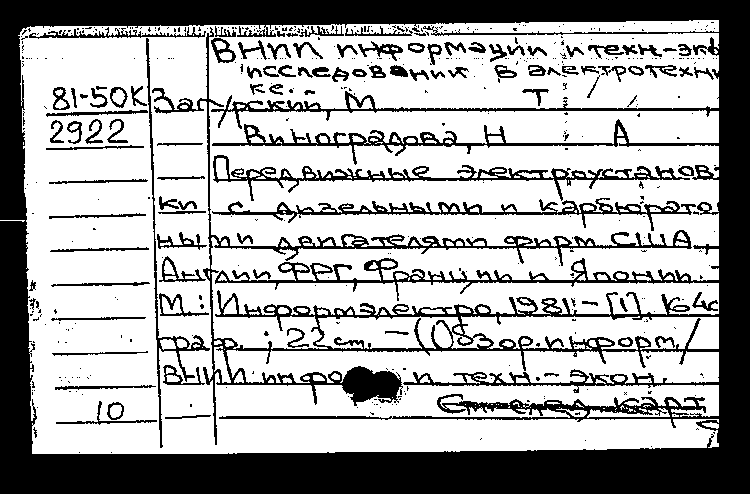 ВНИИ информации и техн.-эко
исследования в электротехни
ке.
81-50К Загурский, М Т
2922 Виноградова, Н А
Передвижные электроустанов
ки с дизельными и карбюрато
ными двигателями фирм США,
Англии, ФРГ, Франции и Японии. -
М.: Информэлектро, 1981. - [1], 64с
граф. ; 22 см. - (Обзор. информ. /
ВНИИ инфо и техн. - экон.
10 карт